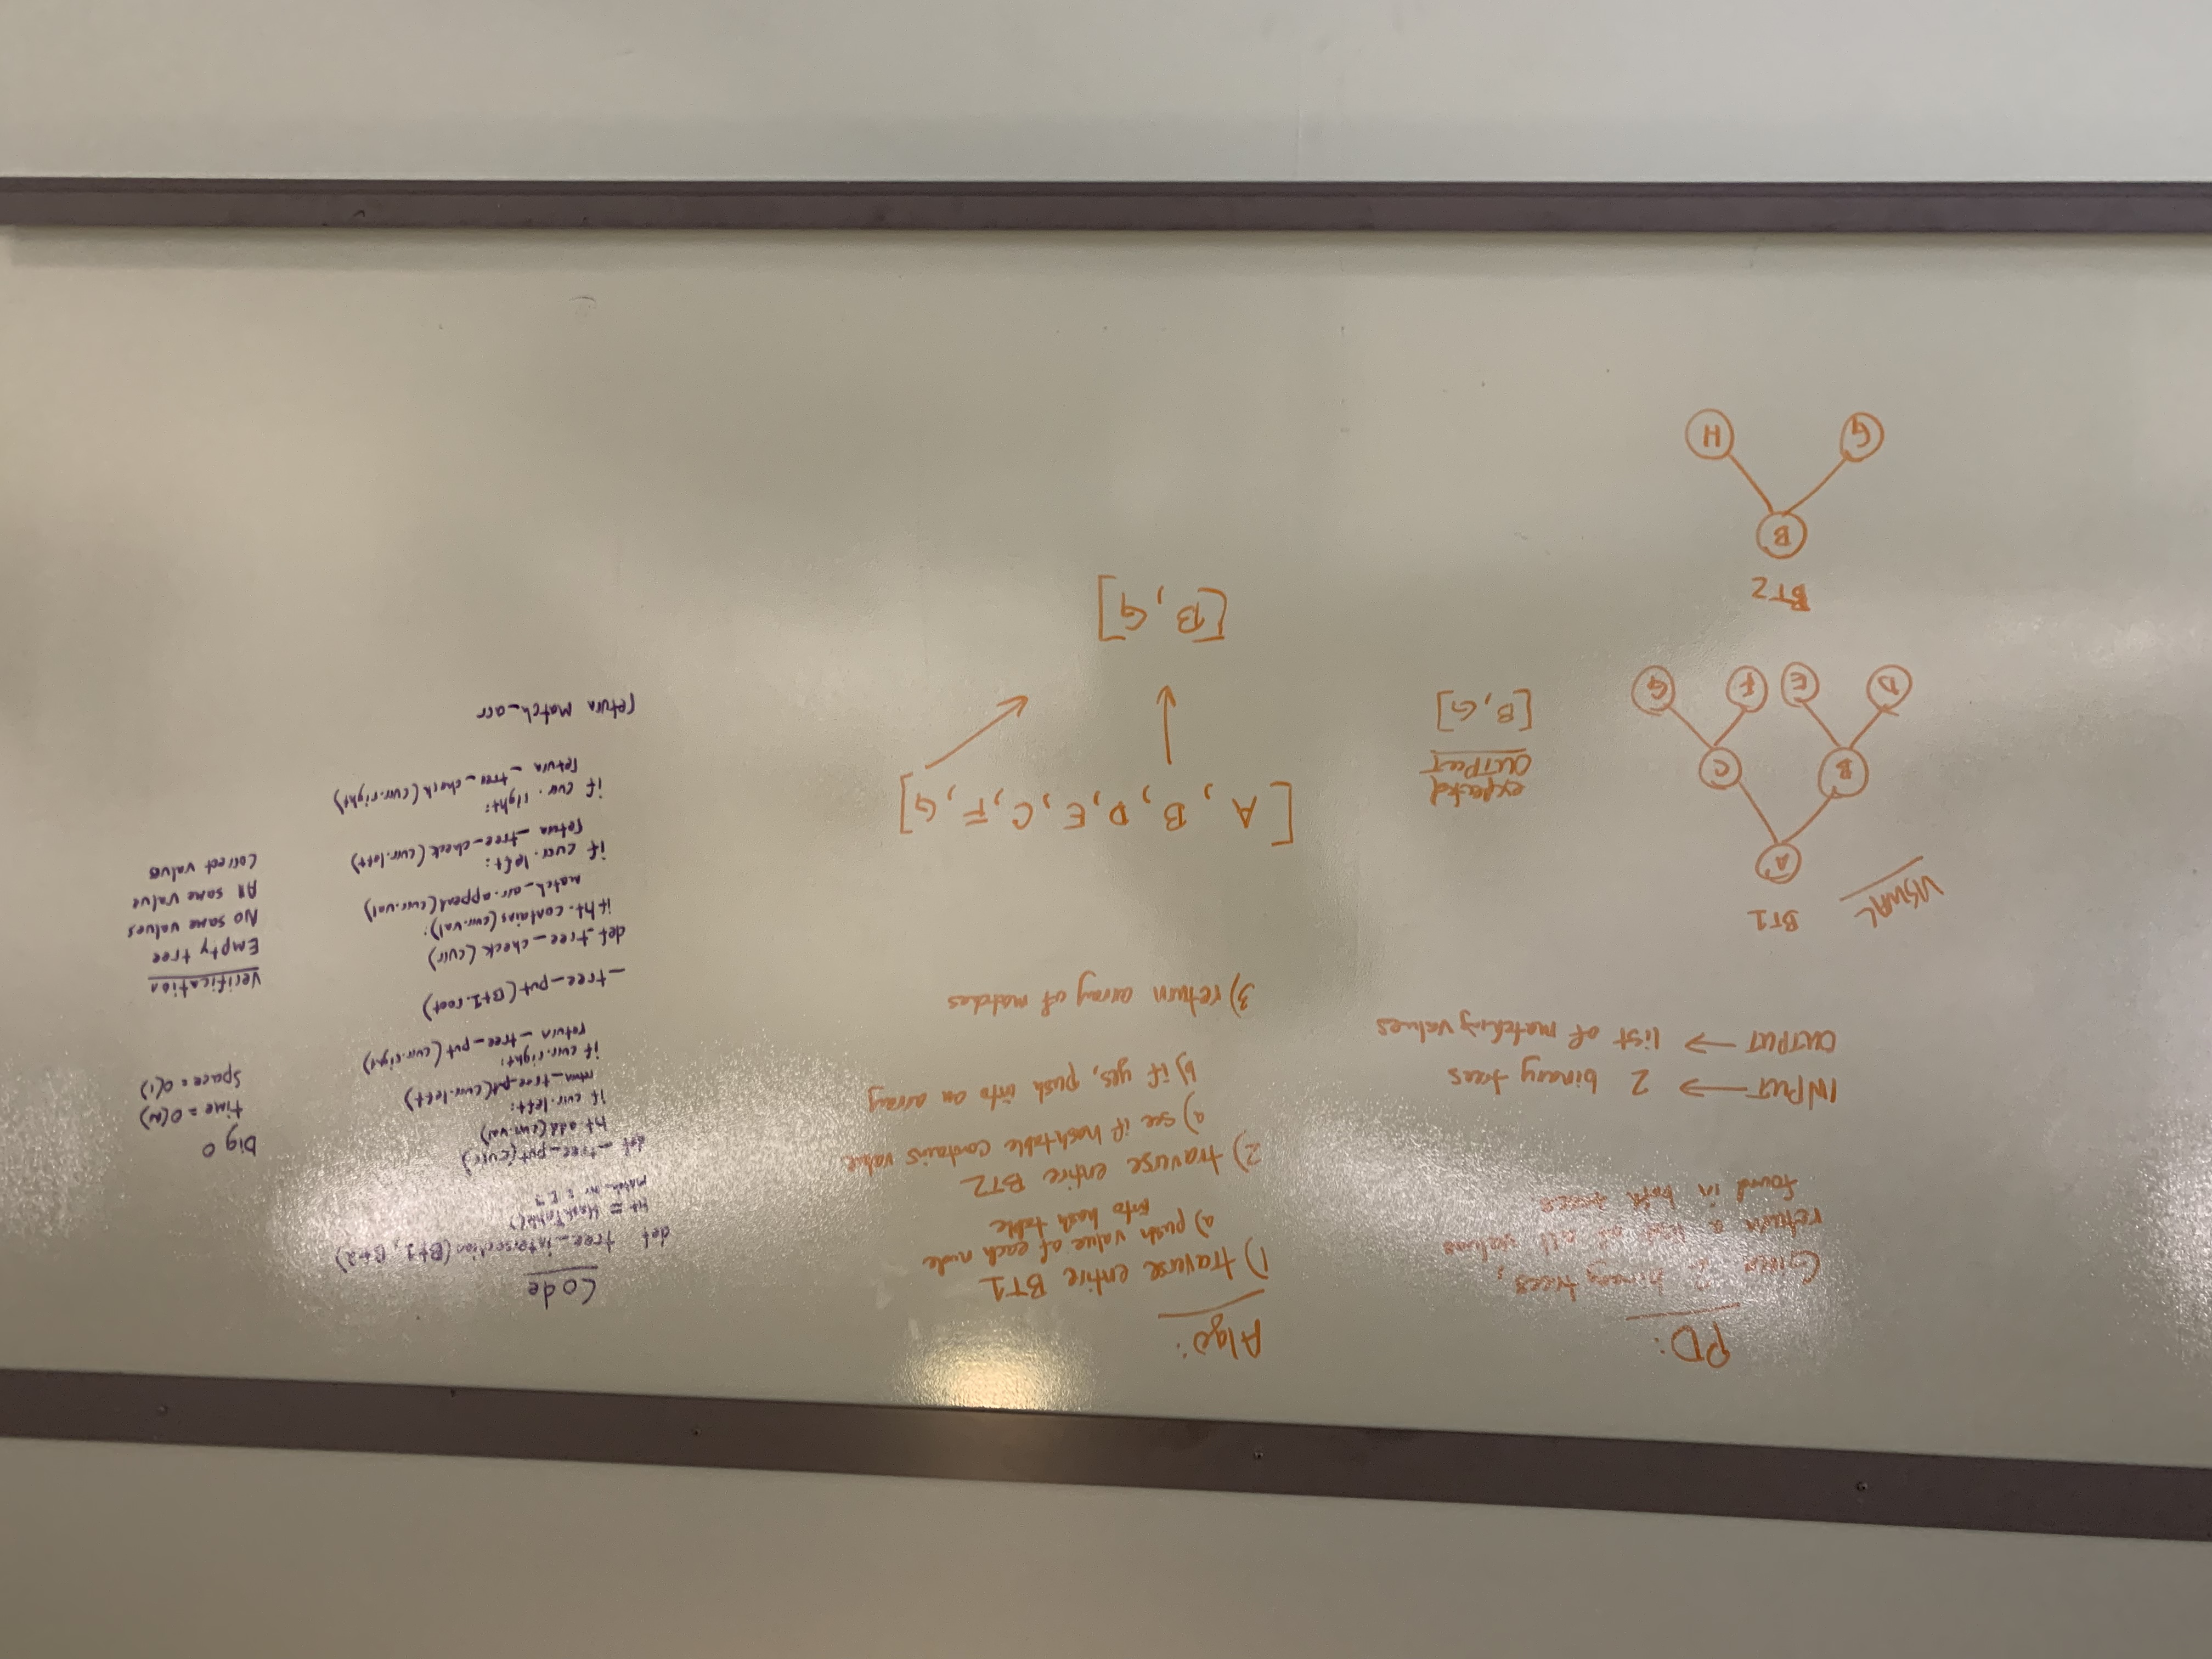 PD:
Given 2 binary trees,
return a list of all values
found in both trees
INPUT → 2 binary trees
OUTPUT → list of matching values
VISUAL
BT1
A
B C
D E F G
expected
OUTPUT
[B, G]
BT2
B
G H
Algo:
1) traverse entire BT1
a) push value of each node
into hash table
2) traverse entire BT2
a) see if hashtable contains value
b) if yes, push into an array
3) return array of matches
[A, B, D, E, C, F, G]
[B, G]
Code
def tree_intersection(Bt1, Bt2)
ht = HashTable()
match_arr = []
def _tree_put(curr)
ht.add(curr.val)
if curr.left:
return _tree_put(curr.left)
if curr.right:
return _tree_put(curr.right)
_tree_put(Bt1.root)
def _tree_check(curr)
if ht.contains(curr.val):
match_arr.append(curr.val)
if curr.left:
return _tree_check(curr.left)
if curr.right:
return _tree_check(curr.right)
return match_arr
big O
time = O(N)
Space = O(1)
Verification
Empty tree
No same values
All same value
Correct values